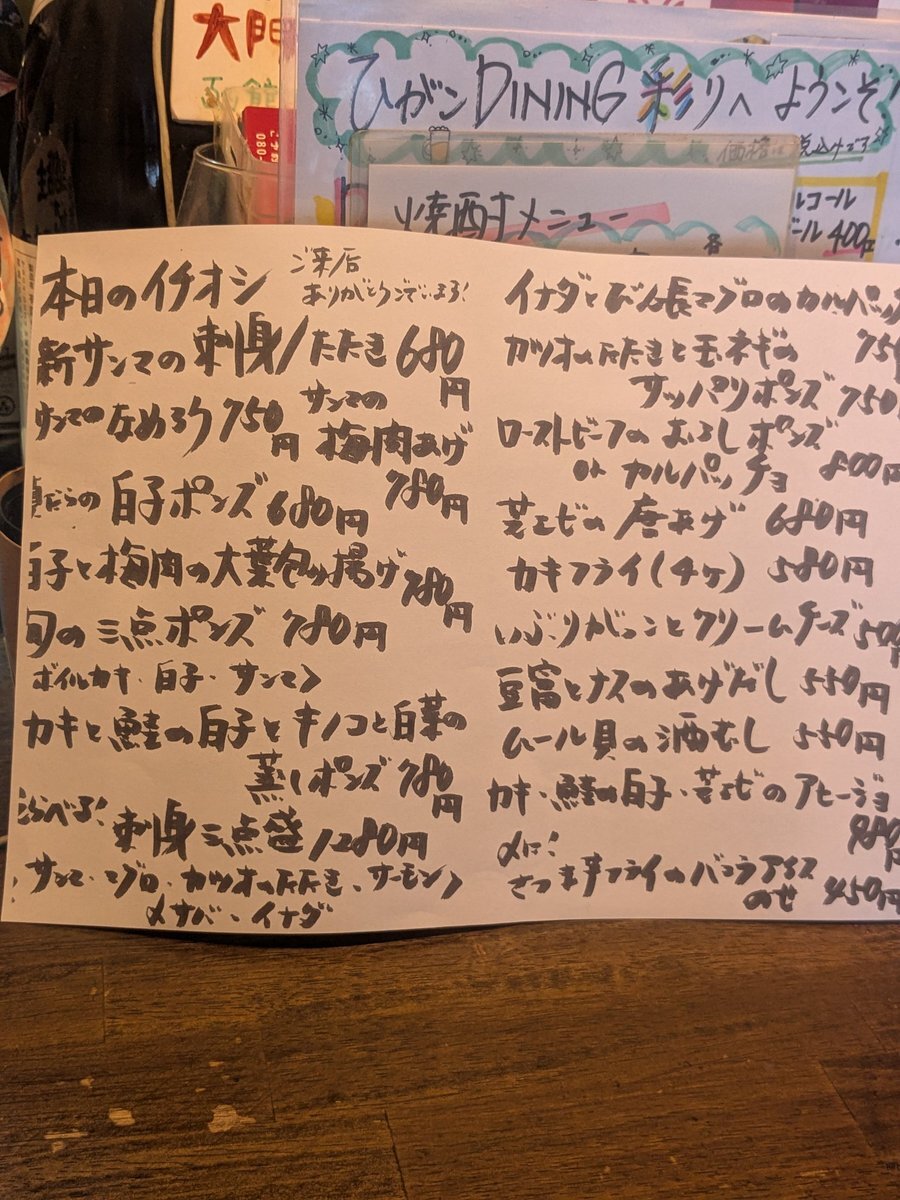 大門
函館
080-
ひがシDINING 彩りへ ようこそ
価格は税込です
焼酎メニュー
ルコール
ール 400円
本日のイチオシ
ご来店
ありがとうございます!
新サンマの刺身/たたき 680円
サンマのなめろう 750円
サンマの
梅肉あげ
780円
真だらの白子ポンズ 680円
白子と梅肉の大葉包み揚げ 780円
旬の三点ポンズ 780円
ボイルカキ・白子・サンマ>
カキと鮭の白子とキノコと白菜の
蒸しポンズ 780円
えらべる!
刺身三点盛 1280円
サンマ・マグロ・カツオのたたき・サーモン>
〆サバ・イナダ
イナダとびん長マグロのカルパッチ
750
カツオのたたきと玉ネギの
サッパリポンズ 750
ローストビーフのおろしポンズ
or カルパッチョ 800円
芝エビの唐あげ 680円
カキフライ(4ヶ) 580円
いぶりがっことクリームチーズ 500円
豆富とナスのあげだし 550円
ムール貝の酒むし 550円
カキ・鮭の白子・芝エビのアヒージョ
980円
〆に!
さつま芋フライのバニラアイス
のせ 450円